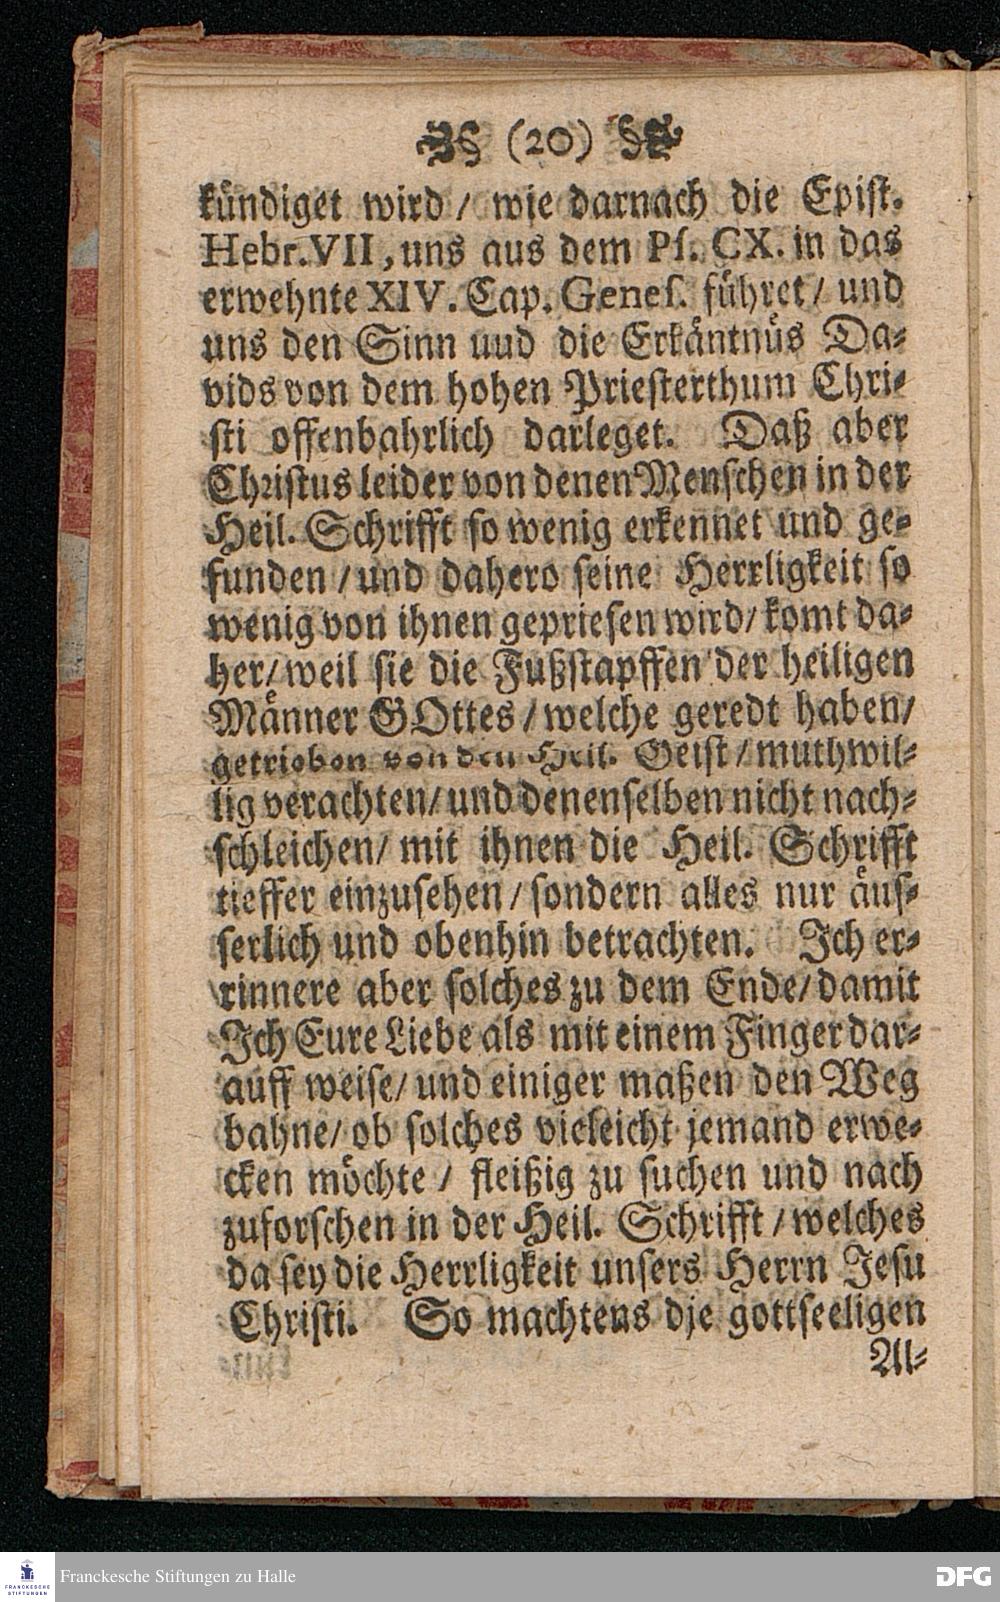 (20)
kündiget wird / wie darnach die Epist.
Hebr. VII, uns aus dem Ps. CX. in das
erwehnte XIV. Cap. Genes. führet / und
uns den Sinn uud die Erkäntnüs Da-
vids von dem hohen Priesterthum Chri-
sti offenbahrlich darleget. Daß aber
Christus leider von denen Menschen in der
Heil. Schrifft so wenig erkennet und ge-
funden / und dahero seine Herrligkeit so
wenig von ihnen gepriesen wird / komt da-
her / weil sie die Fußstapffen der heiligen
Männer GOttes / welche geredt haben /
getrieben von den Heil. Geist / muthwil-
lig verachten / und denenselben nicht nach-
schleichen / mit ihnen die Heil. Schrifft
tieffer einzusehen / sondern alles nur äus-
serlich und obenhin betrachten. Ich er-
rinnere aber solches zu dem Ende / damit
Ich Eure Liebe als mit einem Finger dar-
auff weise / und einiger maßen den Weg
bahne / ob solches vieleicht jemand erwe-
cken möchte / fleißig zu suchen und nach
zuforschen in der Heil. Schrifft / welches
da sey die Herrligkeit unsers Herrn Jesu
Christi. So machtens die gottseeligen
Al-
FRANCKESCHE
STIFTUNGEN
Franckesche Stiftungen zu Halle
DFG